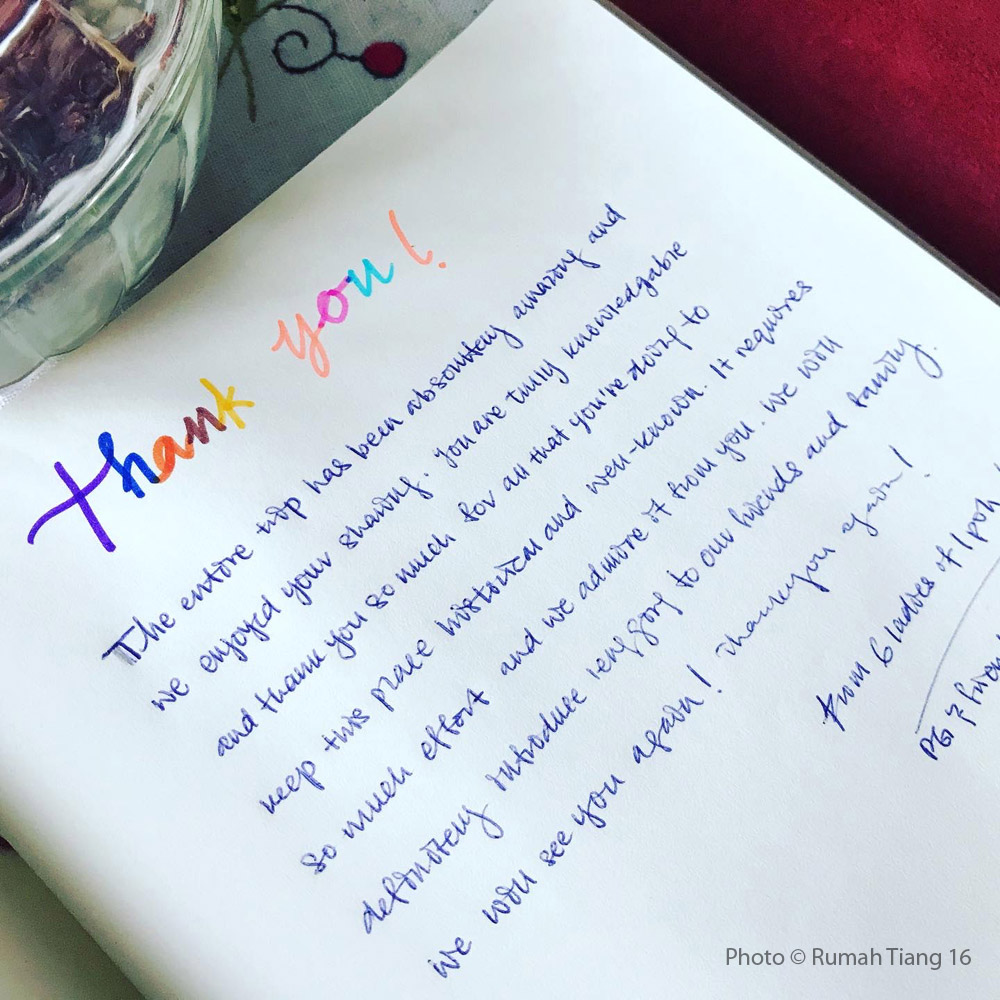 thank you!
The entire trip has been absolutely amazing and
we enjoyed your sharing. You are truly knowledgable
and thank you so much for all that you're doing to
keep this place historical and well-known. It requires
so much effort and we admire it from you. We will
definitely introduce lenggong to our friends and family.
we will see you again! Thankyou again!
from Gladies of Ipoh
PG &
Photo © Rumah Tiang 16